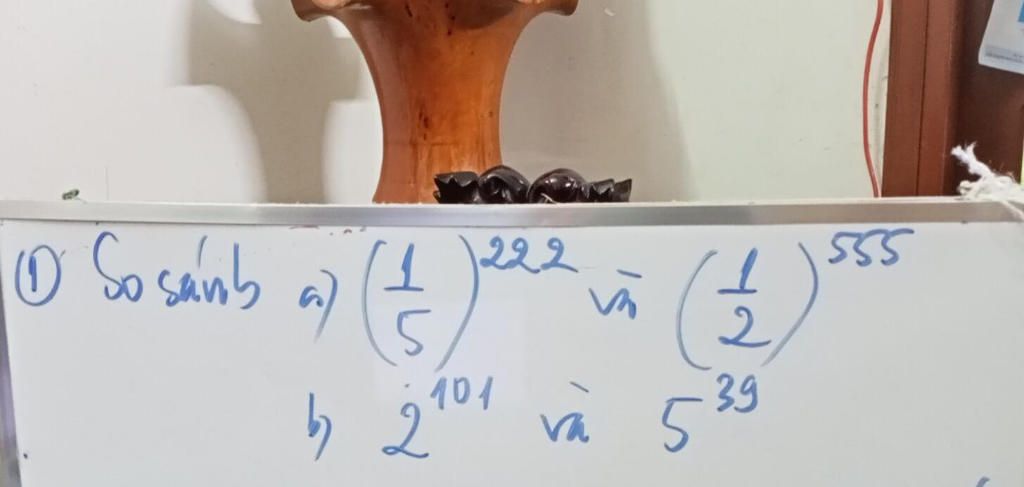 ① So sánh a) (1/5)^222 và (1/2)^555
b) 2^101 và 5^39